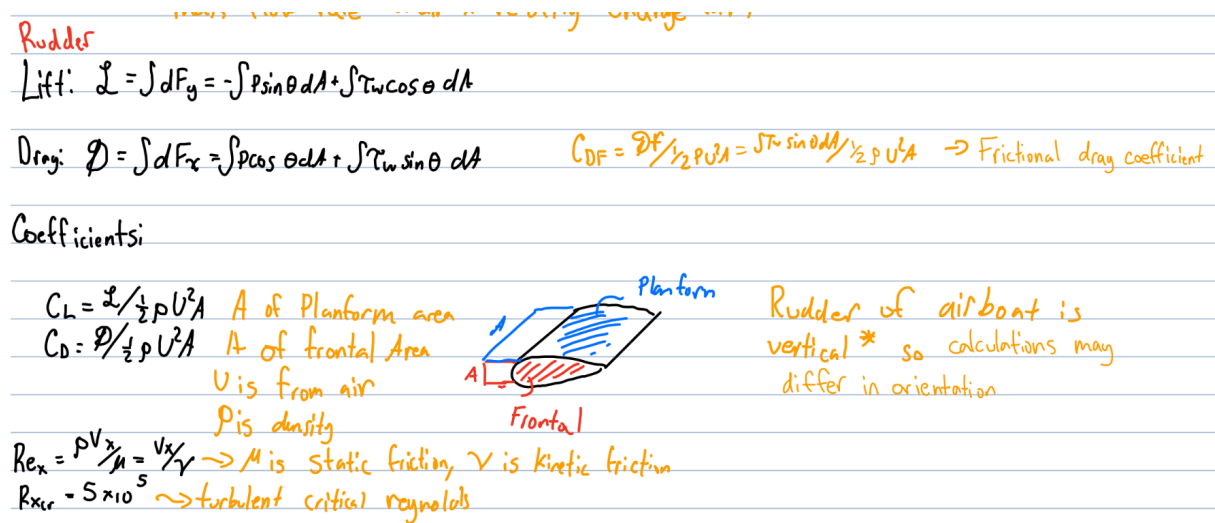 Rudder
Lift: ℒ = ∫dFy = -∫Psinθ dA + ∫τw cosθ dA
Drag: 𝒟 = ∫dFx = ∫pcosθdA + ∫τw sinθ dA
CDF = 𝒟f/½ρU²A = ∫τw sinθdA/½ρU²A → Frictional drag coefficient
Coefficients:
CL = ℒ/½ρU²A A of Planform area
CD = 𝒟/½ρU²A A of frontal Area
U is from air
ρ is density
Planform
A
A
Frontal
Rudder of airboat is
vertical * so calculations may
differ in orientation
Rex = ρVx/μ = Vx/ν → μ is static friction, ν is kinetic friction
Rxcr = 5×10⁵ → turbulent critical reynolds